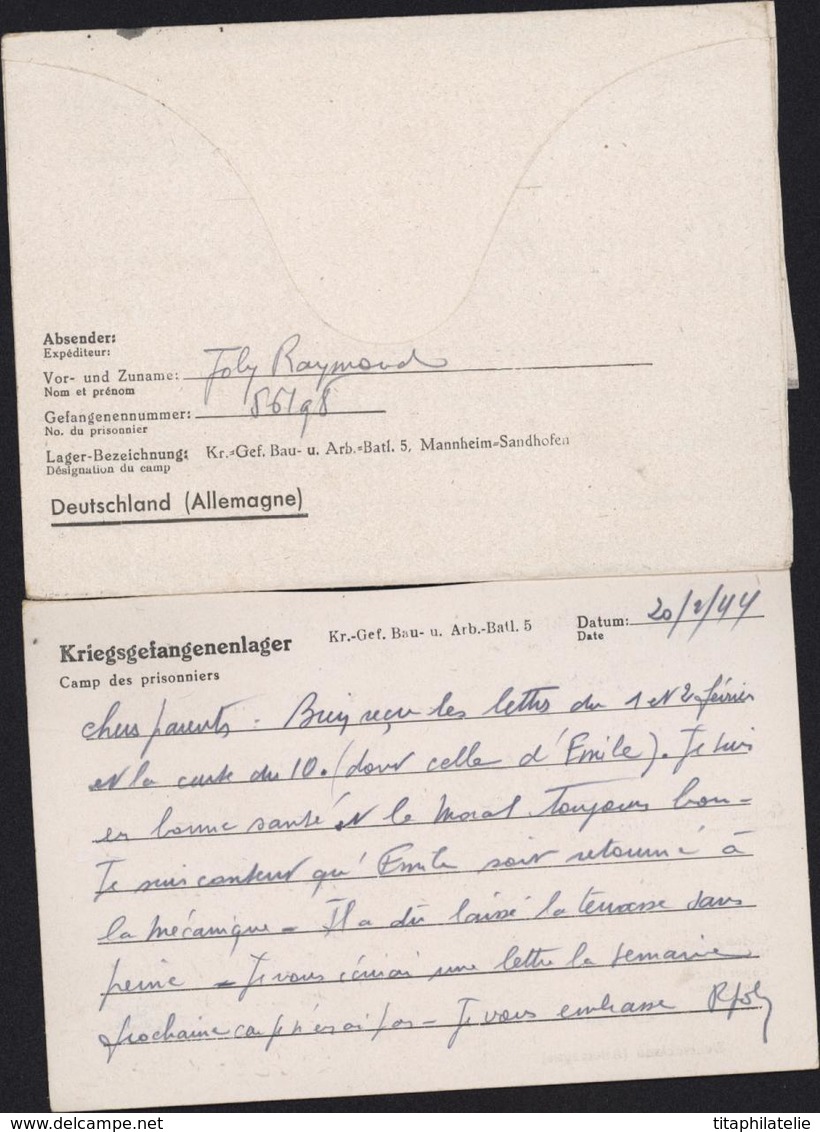 Absender:
Expéditeur:
Vor- und Zuname: Joly Raymond
Nom et prénom
Gefangenennummer: 56198
No. du prisonnier
Lager-Bezeichnung: Kr.=Gef. Bau- u. Arb.=Batl. 5, Mannheim=Sandhofen
Désignation du camp
Deutschland (Allemagne)
Kriegsgefangenenlager Kr.-Gef. Bau- u. Arb.-Batl. 5 Datum: 20/2/44
Camp des prisonniers Date
chers parents. Bien reçu les lettres du 1 et 2 février
et la carte du 10. (dont celle d'Emile). Je suis
en bonne santé et le moral toujours bon -
Je suis content qu'Emile soit retourné à
la mécanique - Il a dû laissé la terrasse sans
peine - Je vous écrirai une lettre la semaine
prochaine car pas - Je vous embrasse RJoly
delcampe.net
titaphilatelie